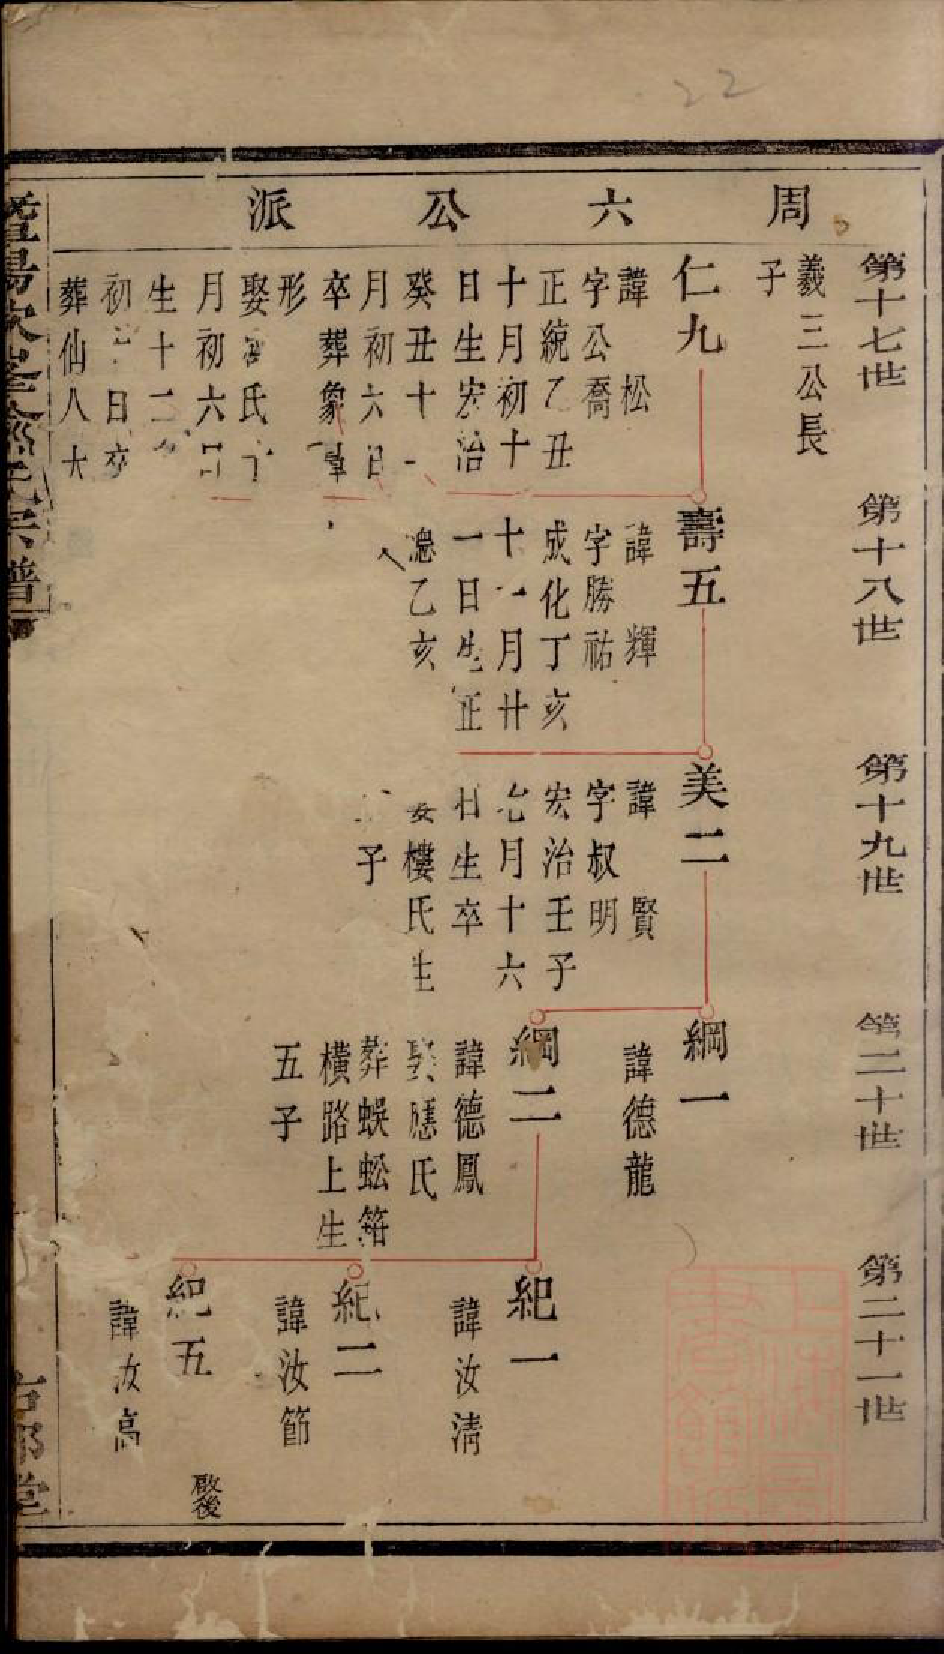 22
周六公派
第十七世
羲三公長
子
仁九
諱松
字公喬
正統乙丑
十月初十
日生宏治
癸丑十
月初六日
卒葬象
形
娶氏
月初六日
生十二
初日卒
葬仙人大
第十八世
壽五
諱輝
字勝祐
成化丁亥
十一月廿
一日生正
德乙亥
第十九世
美二
諱賢
字叔明
宏治壬子
七月十六
日生卒
娶樓氏生
子
第二十世
綱一
諱德龍
綱二
諱德鳳
娶應氏
葬蜈蚣
橫路上生
五子
第二十一世
紀一
諱汝清
紀二
諱汝節
紀五
諱汝高
啟後
暨陽次峯俞氏宗譜